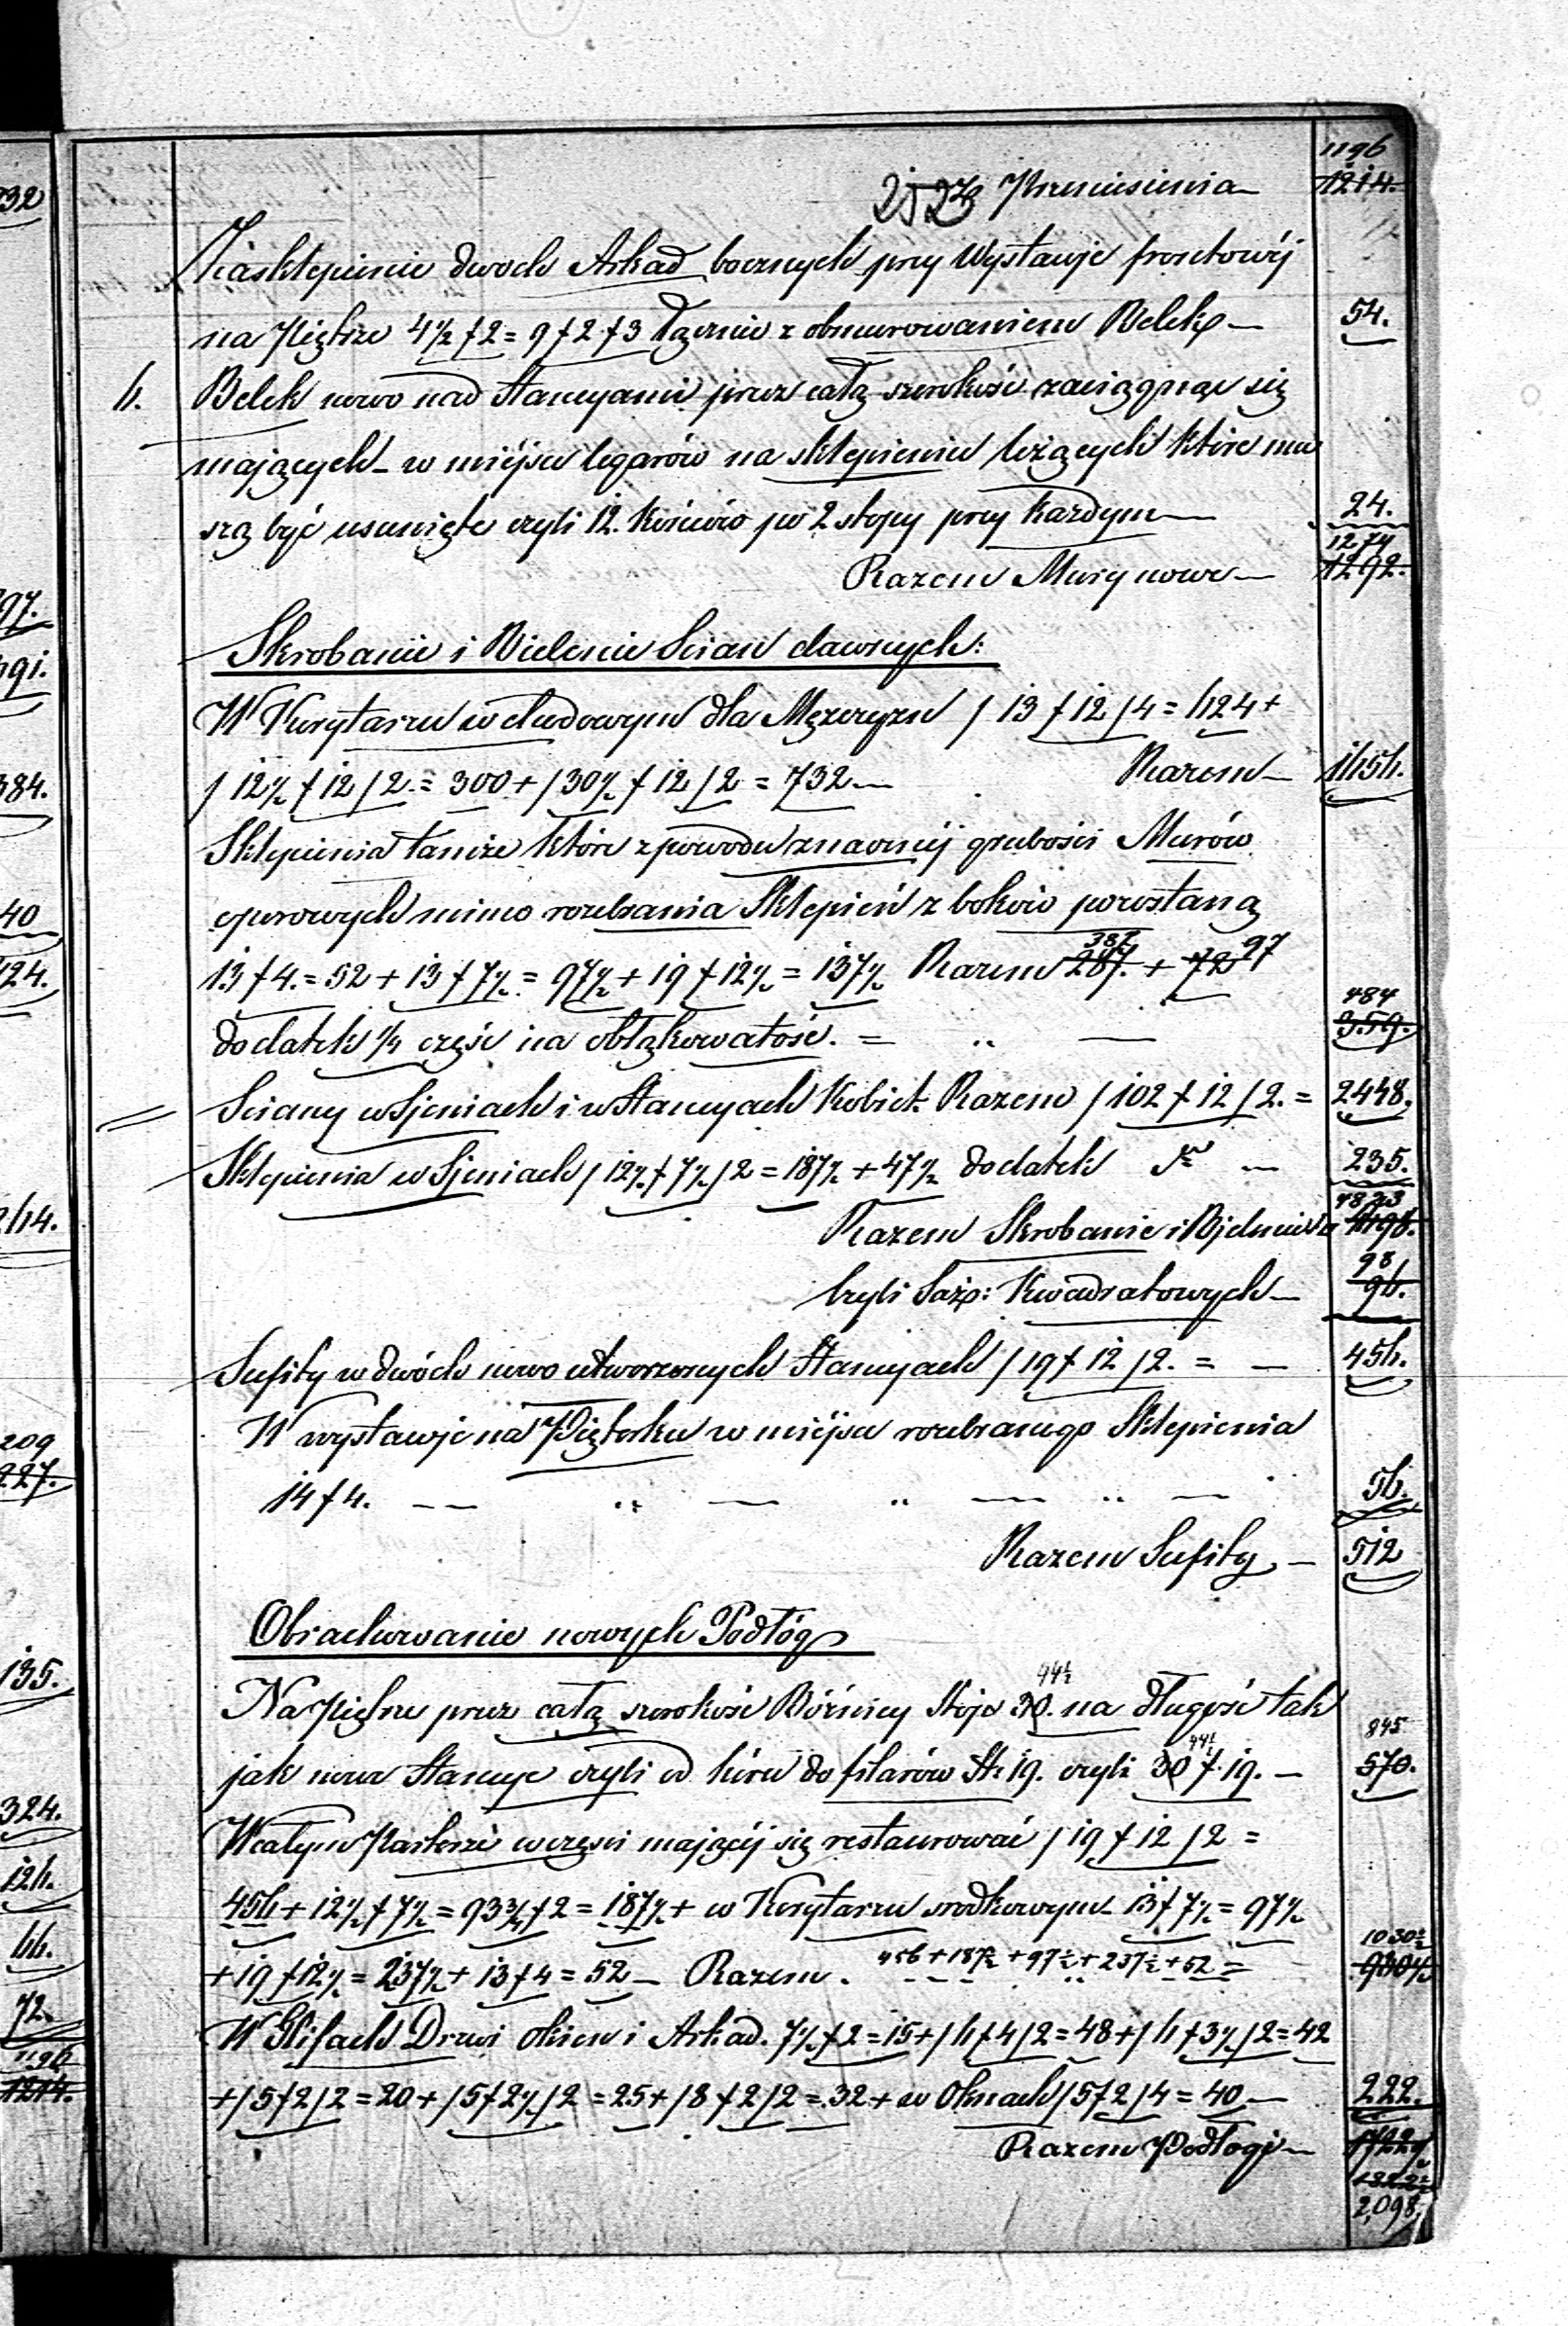 1196
252 Przeniesienia — 1214.
Zasklepienie dwoch Arkad bocznych przy Wystawje frontowéj
na Piętrze 4½ f 2 = 9 f 2 f 3 Łącznie z obmurowaniem Belek — 54.
6. Belek nowo nad Stancyami przez całą szerokość zaciągnąc się
mających — w miéjscu legarów na sklepieniu leżących które mu
szą być usunięte czyli 12. końców po 2 stopy przy każdym — 24.
1274
Razem Mury nowe — 1292.
Skrobanie i Bielenie Scian dawnych:
W Kurytarzu wchodowym dla Męzczyzn / 13 f 12 / 4 = 624 +
/ 12½ f 12 / 2 = 300 + / 30½ f 12 / 2 = 732 — Razem — 1656.
Sklepienia tamże które z powodu znacznéj grubości Murów
oporowych mimo rozebrania Sklepień z boków pozostaną
387 97
13 f 4. = 52 + 13 f 7½ = 97½ + 19 f 12½ = 137½ Razem 287. + 72
484
dodatek ¼ część na obłąkowatość. = „ — 359.
Sciany w Sieniach i w Stancyach Kobiet. Razem / 102 f 12 / 2. = 2448.
Sklepienia w Sieniach / 12½ f 7½ / 2 = 187½ + 47½ dodatek — 235.
4823
Razem Skrobanie i Bjelenie 4698.
98
czyli Sąż: Kwadratowych — 96.
Sufity w dwóch nowo utworzonych Stancyach / 19 f 12 / 2. = — 456.
W wystawje na Piąterku w miéjscu rozebranego Sklepienia
14 f 4. — — „ — „ — „ — 56.
Razem Sufity — 512
Obrachowanie nowych Podłóg
44½
Na Piętrze przez całą szerokość Bóżnicy Stóp 30. na długość tak
44½ 845
jak nowe Stancye czyli od kóru do filarów St: 19. czyli 30 f 19. — 570.
W całym Parterze w części mającéj się restaurować / 19 f 12 / 2 =
456 + 12½ f 7½ = 93¾ f 2 = 187½ + w Kurytarzu srodkowym 13 f 7½ = 97½
456 + 187½ + 97½ + 237½ + 52 = 1030½
+ 19 f 12½ = 237½ + 13 f 4 = 52 — Razem. 930½
W Glifach Drzwi okien i Arkad. 7½ f 2 = 15 + / 6 f 4 / 2 = 48 + / 6 f 3½ / 2 = 42
+ / 5 f 2 / 2 = 20 + / 5 f 2½ / 2 = 25 + / 8 f 2 / 2 = 32 + w Oknach / 5 f 2 / 4 = 40 — 222.
Razem Podłogi — 1722½
2,098.